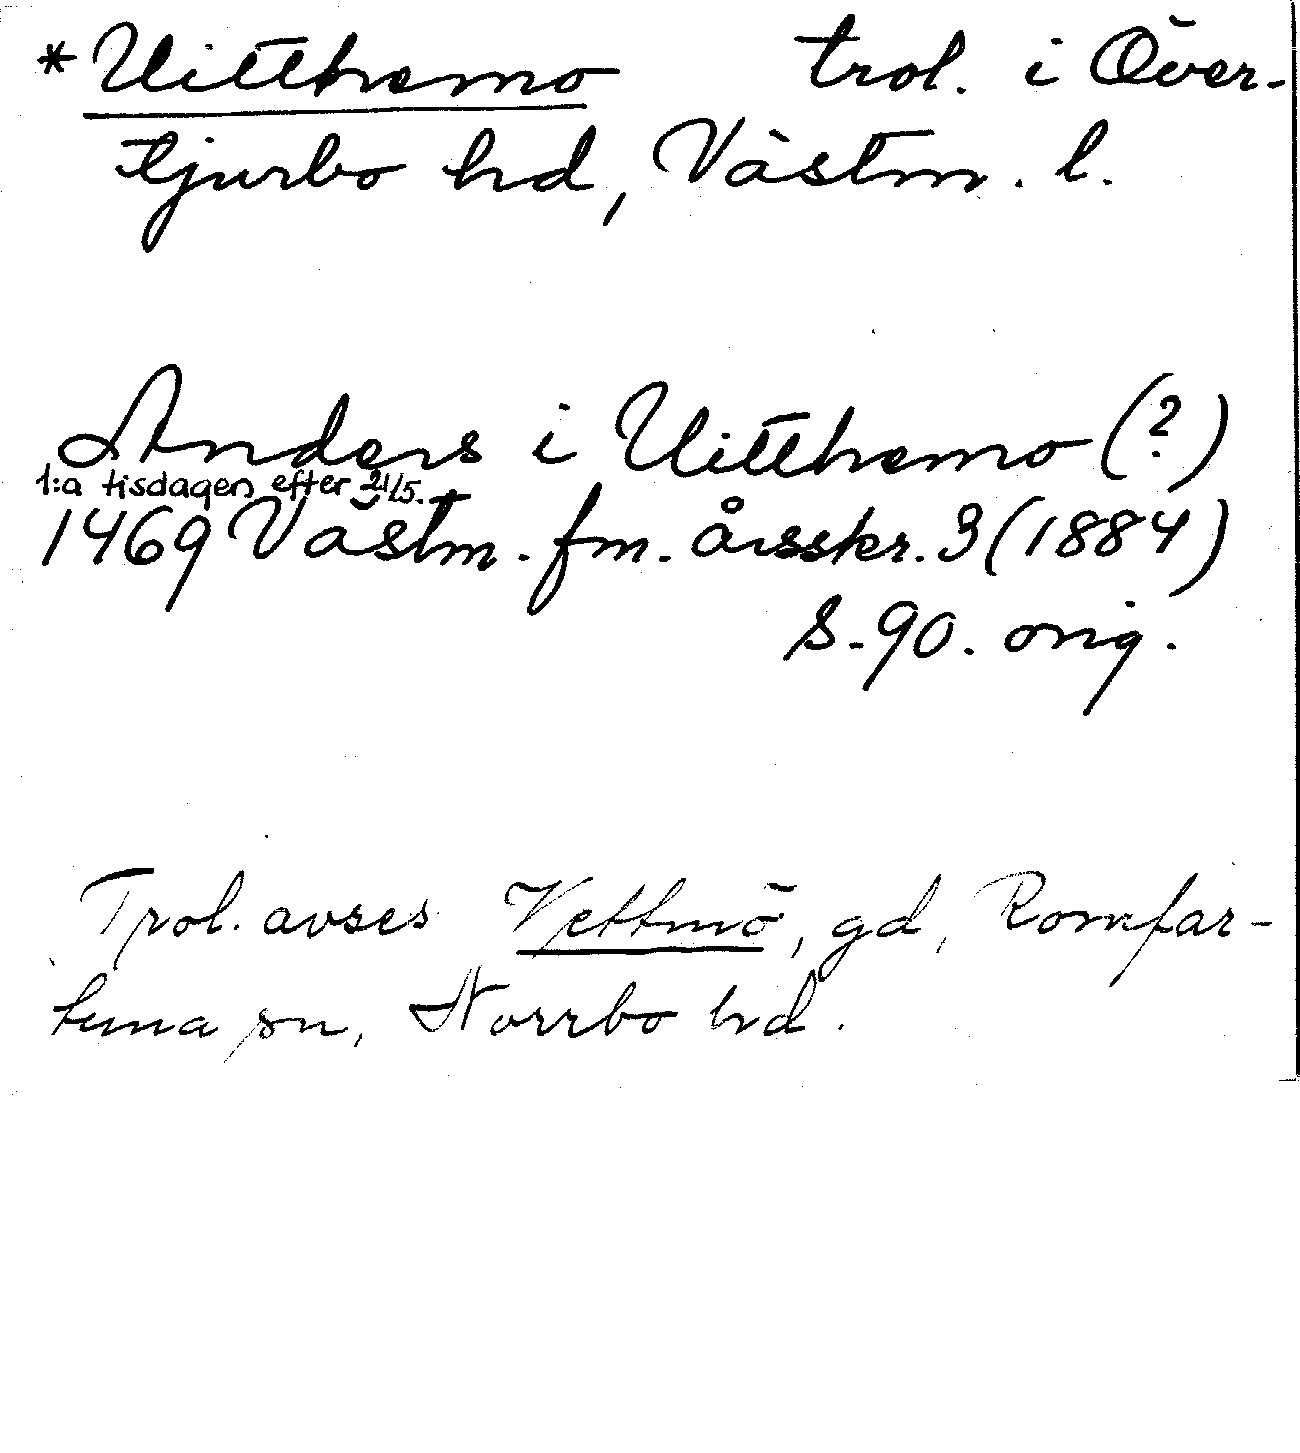 *Uitthemo trol. i Över-
tjurbo hd, Västm. l.
Anders i Uitthemo (?)
1:a tisdagen efter 21/5.
1469 Västm. fm. årsskr. 3 (1884)
s. 90. orig.
Trol. avses Vettmö, gd, Romfar-
tuna sn, Norrbo hd.